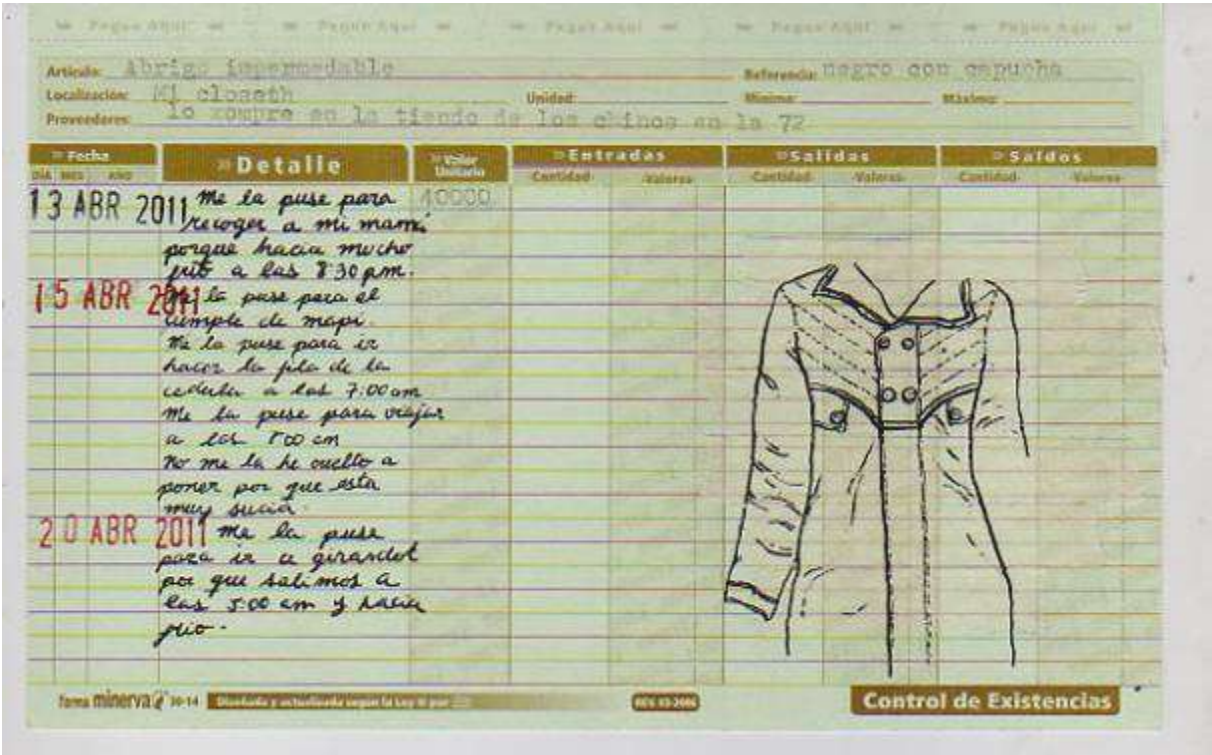 Pegue Aquí Pegue Aquí Pegue Aquí Pegue Aquí Pegue Aquí
Artículo: Abrigo impermedable Referencia: negro con capucha
Localización: Mi closeth Unidad: Mínimo: Máximo:
Proveedores: lo compre en la tienda de los chinos en la 72
Fecha Detalle Valor Unitario Entradas Salidas Saldos
DÍA MES AÑO Cantidad Valores Cantidad Valores Cantidad Valores
13 ABR 2011 me la puse para 40000
recoger a mi mamá
porque hacia mucho
frio a las 8:30 pm.
15 ABR 2011 Me la puse para el
cumple de mapi.
Me la puse para ir
hacer la fila de la
cedula a las 7:00 am
Me la puse para viajar
a las am
No me la he vuelto a
poner por que esta
muy sucia.
20 ABR 2011 me la puse
para ir a girardot
por que salimos a
las 5:00 am y hacia
frio.
forma minerva 30-14 Diseñada y actualizada según la Ley © por REV. 03-2006 Control de Existencias